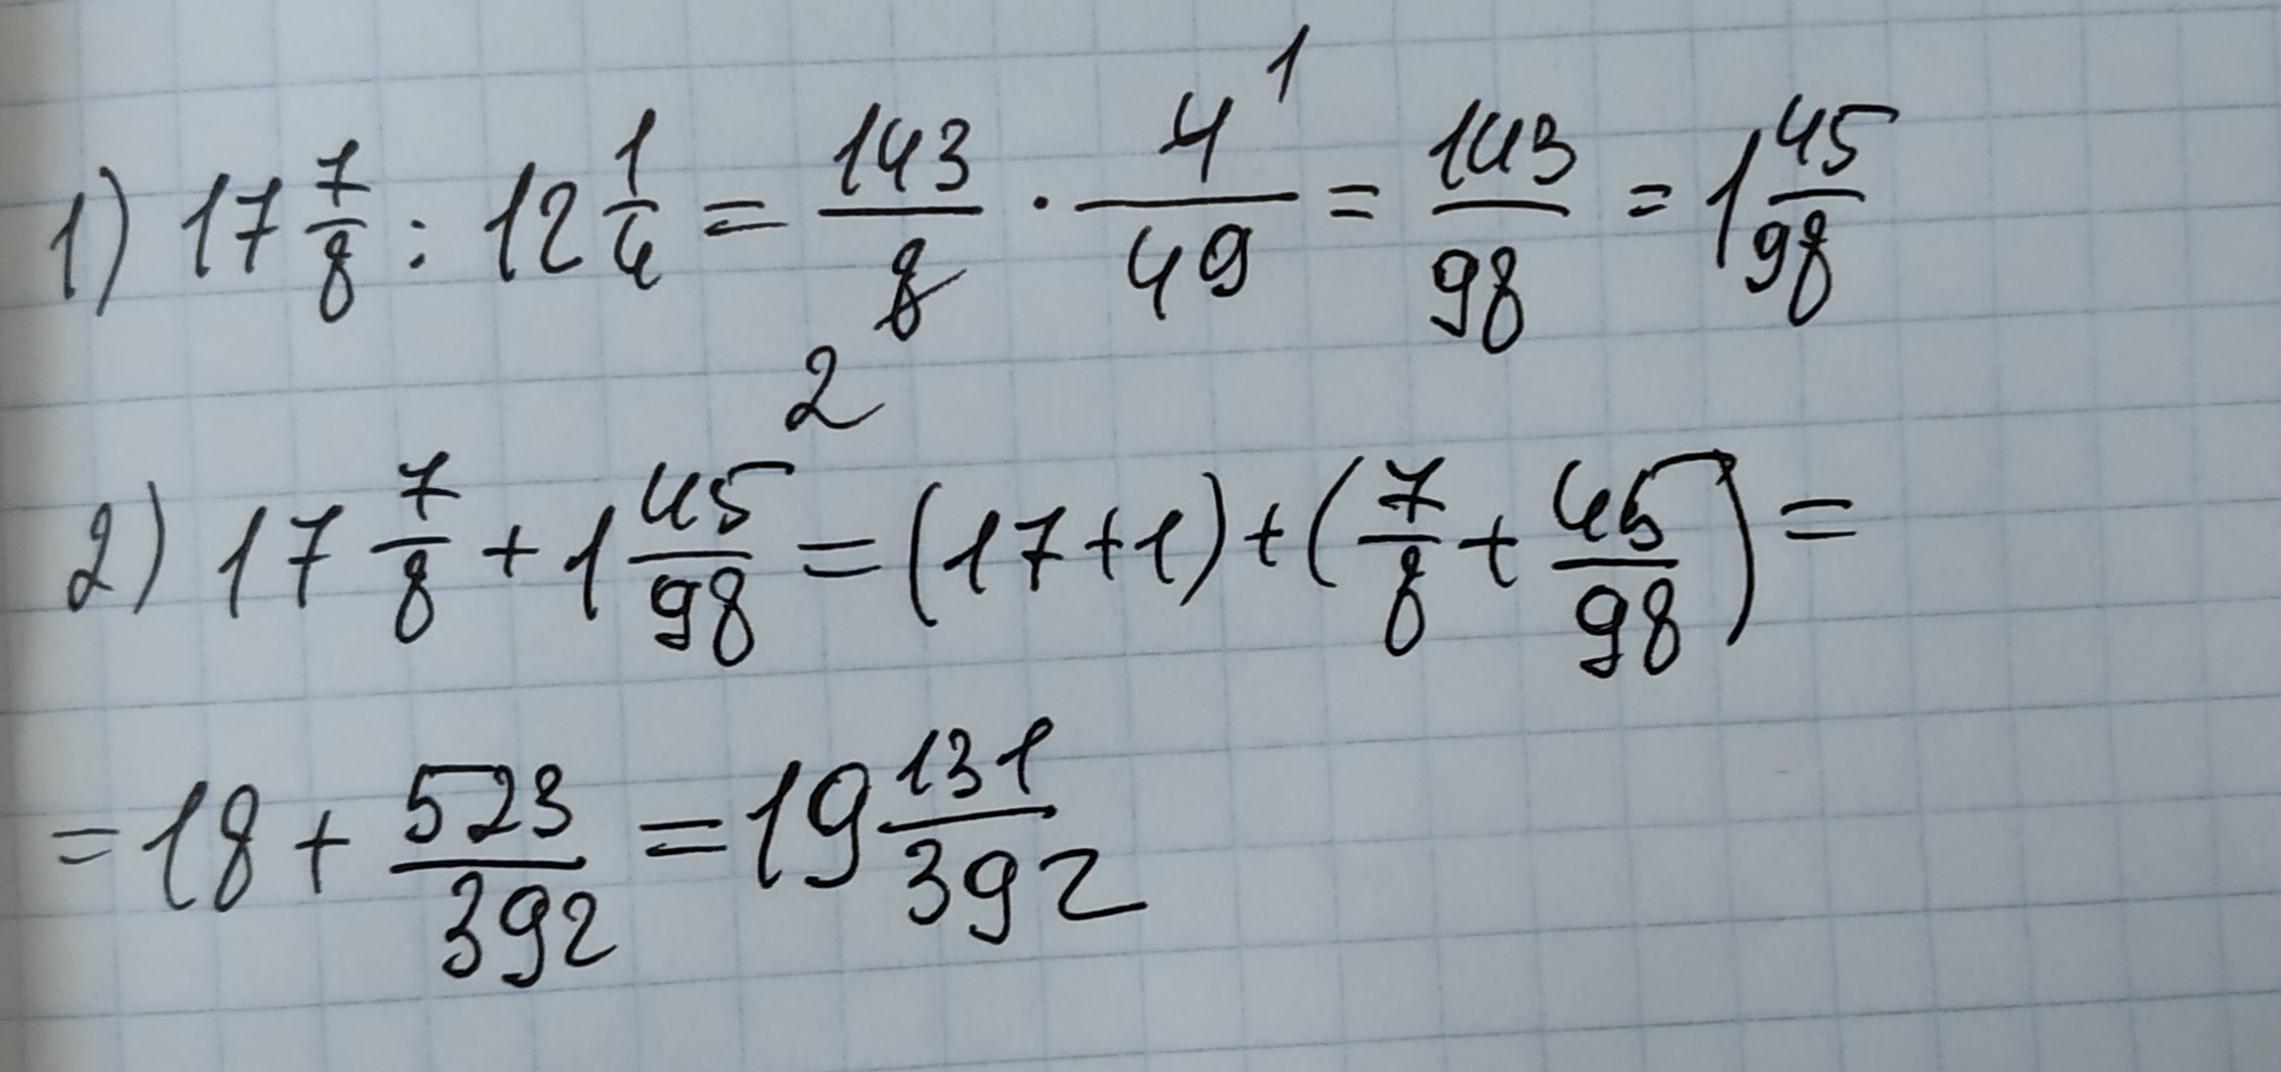 1) 17 7/8 : 12 1/4 = 143/8 · 4/49 = 143/98 = 1 45/98
1
2
2) 17 7/8 + 1 45/98 = (17+1) + (7/8 + 45/98) =
= 18 + 523/392 = 19 131/392